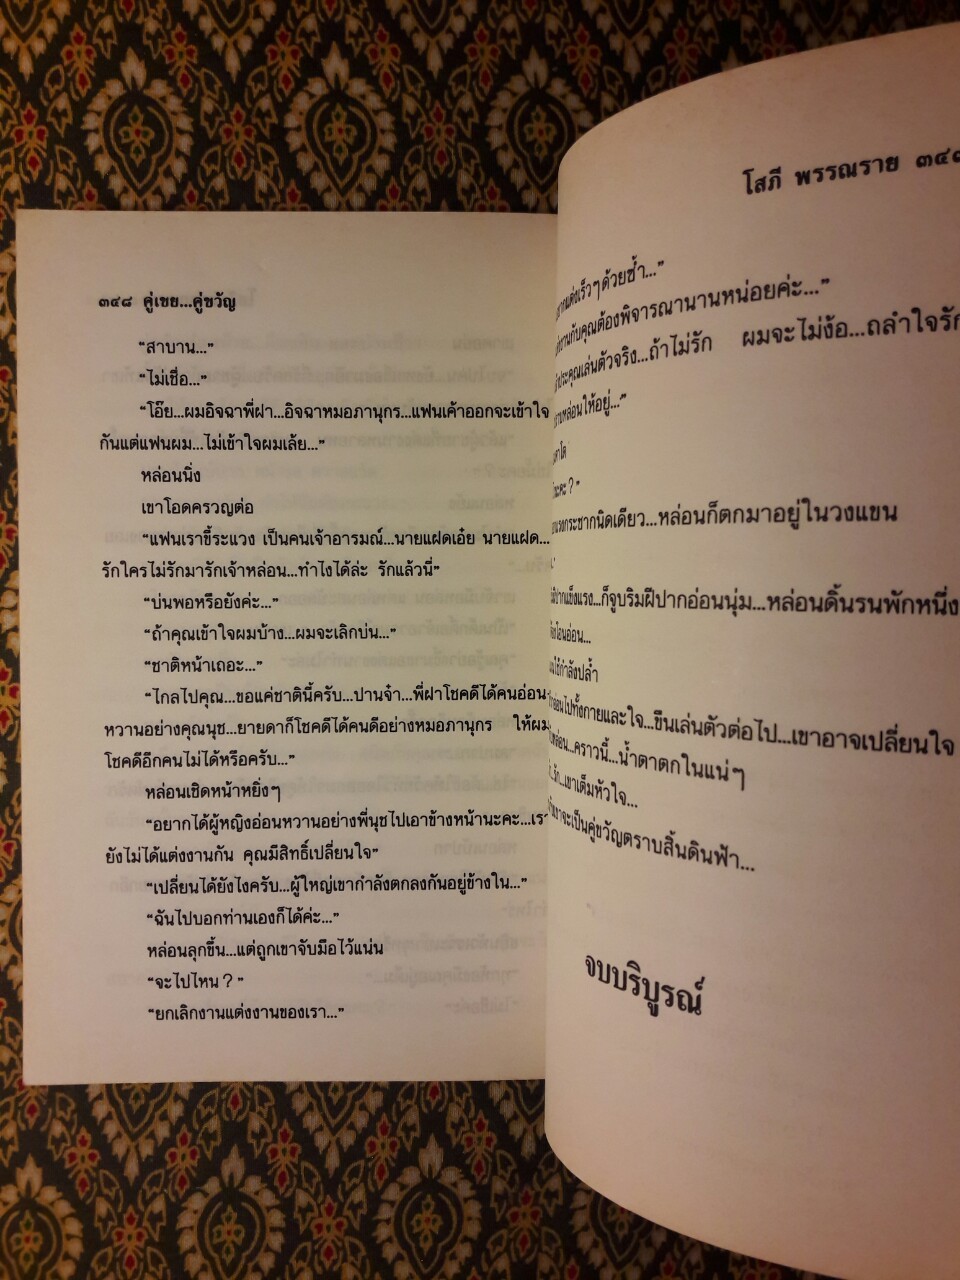 ๓๔๘ คู่เขย...คู่ขวัญ
“สาบาน...”
“ไม่เชื่อ...”
“โอ๊ย...ผมอิจฉาพี่ฝา...อิจฉาหมอภานุกร...แฟนเค้าออกจะเข้าใจ
กันแต่แฟนผม...ไม่เข้าใจผมเล้ย...”
หล่อนนิ่ง
เขาโอดครวญต่อ
“แฟนเราขี้ระแวง เป็นคนเจ้าอารมณ์...นายแฝดเอ๋ย นายแฝด...
รักใครไม่รักมารักเจ้าหล่อน...ทำไงได้ล่ะ รักแล้วนี่”
“บ่นพอหรือยังค่ะ...”
“ถ้าคุณเข้าใจผมบ้าง...ผมจะเลิกบ่น...”
“ชาติหน้าเถอะ...”
“ไกลไปคุณ...ขอแค่ชาตินี้ครับ...ปานจ๋า...พี่ฝาโชคดีได้คนอ่อน
หวานอย่างคุณนุช...ยายดาก็โชคดีได้คนดีอย่างหมอภานุกร ให้ผม
โชคดีอีกคนไม่ได้หรือครับ...”
หล่อนเชิดหน้าหยิ่งๆ
“อยากได้ผู้หญิงอ่อนหวานอย่างพี่นุชไปเอาข้างหน้านะคะ...เรา
ยังไม่ได้แต่งงานกัน คุณมีสิทธิ์เปลี่ยนใจ”
“เปลี่ยนได้ยังไงครับ...ผู้ใหญ่เขากำลังตกลงกันอยู่ข้างใน...”
“ฉันไปบอกท่านเองก็ได้ค่ะ...”
หล่อนลุกขึ้น...แต่ถูกเขาจับมือไว้แน่น
“จะไปไหน ? ”
“ยกเลิกงานแต่งงานของเรา...”
โสภี พรรณราย
เร็วๆด้วยซ้ำ...”
งานกับคุณต้องพิจารณานานหน่อยค่ะ...”
คุณเล่นตัวจริง...ถ้าไม่รัก ผมจะไม่ง้อ...ถลำใจรัก
หล่อนให้อยู่...”
คะ ? ”
กระชากนิดเดียว...หล่อนก็ตกมาอยู่ในวงแขน
ปากแข็งแรง...ก็จูบริมฝีปากอ่อนนุ่ม...หล่อนดิ้นรนพักหนึ่ง
โอนอ่อน...
ใช้กำลังปล้ำ
อ่อนไปทั้งกายและใจ...ขืนเล่นตัวต่อไป...เขาอาจเปลี่ยนใจ
หล่อน...คราวนี้...น้ำตาตกในแน่ๆ
รัก...เขาเต็มหัวใจ...
เขาจะเป็นคู่ขวัญตราบสิ้นดินฟ้า...
จบบริบูรณ์